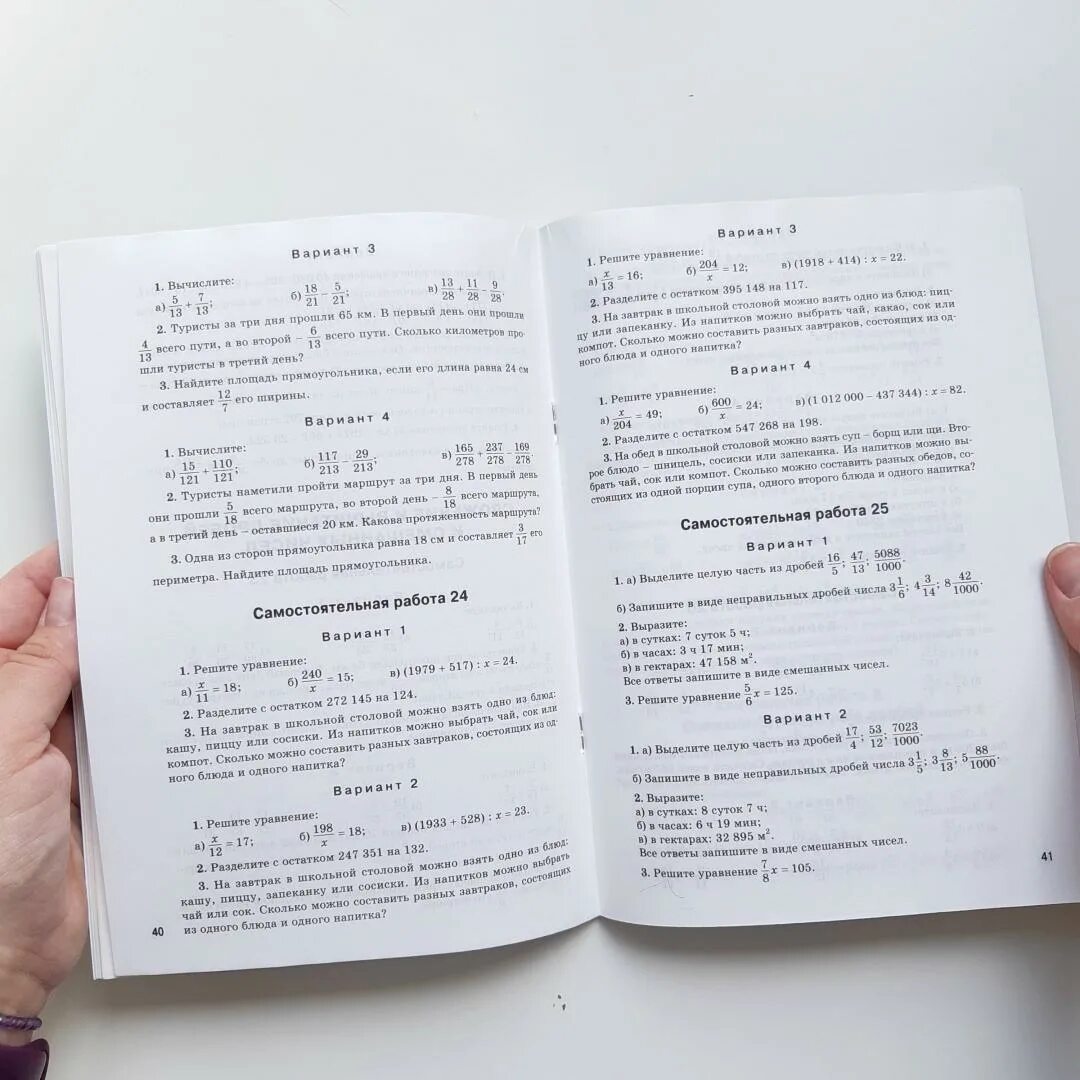 Вариант 3
1. Вычислите:
а) 5/13 + 7/13; б) 18/21 − 5/21; в) 13/28 + 11/28 − 9/28.
2. Туристы за три дня прошли 65 км. В первый день они прошли
4/13 всего пути, а во второй – 6/13 всего пути. Сколько километров про-
шли туристы в третий день?
3. Найдите площадь прямоугольника, если его длина равна 24 см
и составляет 12/7 его ширины.
Вариант 4
1. Вычислите:
а) 15/121 + 110/121; б) 117/213 − 29/213; в) 165/278 + 237/278 − 169/278.
2. Туристы наметили пройти маршрут за три дня. В первый день
они прошли 5/18 всего маршрута, во второй день – 8/18 всего маршрута,
а в третий день – оставшиеся 20 км. Какова протяженность маршрута?
3. Одна из сторон прямоугольника равна 18 см и составляет 3/17 его
периметра. Найдите площадь прямоугольника.
Самостоятельная работа 24
Вариант 1
1. Решите уравнение:
а) x/11 = 18; б) 240/x = 15; в) (1979 + 517) : x = 24.
2. Разделите с остатком 272 145 на 124.
3. На завтрак в школьной столовой можно взять одно из блюд:
кашу, пиццу или сосиски. Из напитков можно выбрать чай, сок или
компот. Сколько можно составить разных завтраков, состоящих из од-
ного блюда и одного напитка?
Вариант 2
1. Решите уравнение:
а) x/12 = 17; б) 198/x = 18; в) (1933 + 528) : x = 23.
2. Разделите с остатком 247 351 на 132.
3. На завтрак в школьной столовой можно взять одно из блюд:
кашу, пиццу, запеканку или сосиски. Из напитков можно выбрать
чай или сок. Сколько можно составить разных завтраков, состоящих
из одного блюда и одного напитка?
40
Вариант 3
1. Решите уравнение:
а) x/13 = 16; б) 204/x = 12; в) (1918 + 414) : x = 22.
2. Разделите с остатком 395 148 на 117.
3. На завтрак в школьной столовой можно взять одно из блюд: пиц-
цу или запеканку. Из напитков можно выбрать чай, какао, сок или
компот. Сколько можно составить разных завтраков, состоящих из од-
ного блюда и одного напитка?
Вариант 4
1. Решите уравнение:
а) x/204 = 49; б) 600/x = 24; в) (1 012 000 − 437 344) : x = 82.
2. Разделите с остатком 547 268 на 198.
3. На обед в школьной столовой можно взять суп – борщ или щи. Вто-
рое блюдо – шницель, сосиски или запеканка. Из напитков можно вы-
брать чай, сок или компот. Сколько можно составить разных обедов, со-
стоящих из одной порции супа, одного второго блюда и одного напитка?
Самостоятельная работа 25
Вариант 1
1. а) Выделите целую часть из дробей 16/5; 47/13; 5088/1000.
б) Запишите в виде неправильных дробей числа 3 1/6; 4 3/14; 8 42/1000.
2. Выразите:
а) в сутках: 7 суток 5 ч;
б) в часах: 3 ч 17 мин;
в) в гектарах: 47 158 м².
Все ответы запишите в виде смешанных чисел.
3. Решите уравнение 5/6 x = 125.
Вариант 2
1. а) Выделите целую часть из дробей 17/4; 53/12; 7023/1000.
б) Запишите в виде неправильных дробей числа 3 1/5; 3 8/13; 5 88/1000.
2. Выразите:
а) в сутках: 8 суток 7 ч;
б) в часах: 6 ч 19 мин;
в) в гектарах: 32 895 м².
Все ответы запишите в виде смешанных чисел.
3. Решите уравнение 7/8 x = 105.
41